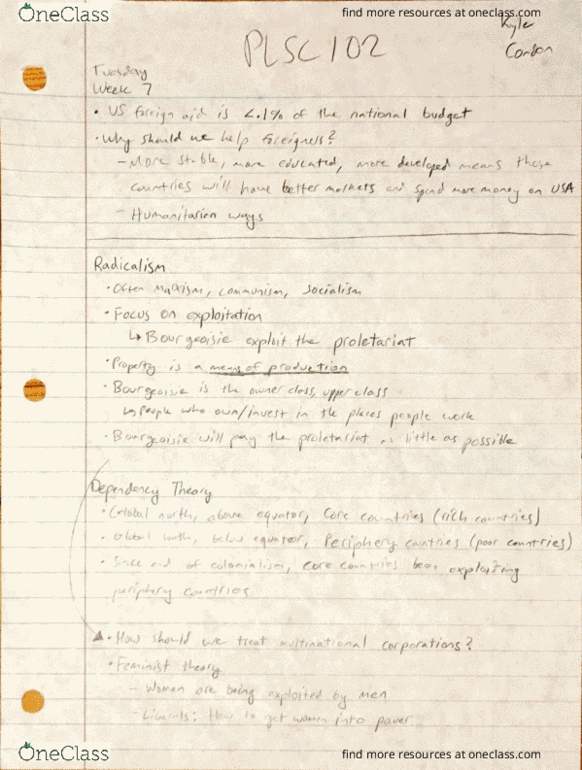 OneClass
find more resources at oneclass.com
Kyle
PLSC 102
Tuesday
Week 7
• US foreign aid is <.1% of the national budget
• Why should we help foreigners?
– More stable, more educated, more developed means those
countries will have better markets and spend more money on USA
– Humanitarian ways
Radicalism
• Often Marxism, communism, socialism
• Focus on exploitation
↳ Bourgeoisie exploit the proletariat
• Property is a means of production
• Bourgeoisie is the owner class, upper class
↳ people who own/invest in the places people work
• Bourgeoisie will pay the proletariat as little as possible
Dependency Theory
• Global north, above equator, core countries (rich countries)
• Global south, below equator, Periphery countries (poor countries)
• Since end of colonialism, core countries been exploiting
periphery countries
• How should we treat multinational corporations?
• Feminist theory
– Women are being exploited by men
– Liberals: How to get women into power
OneClass
find more resources at oneclass.com